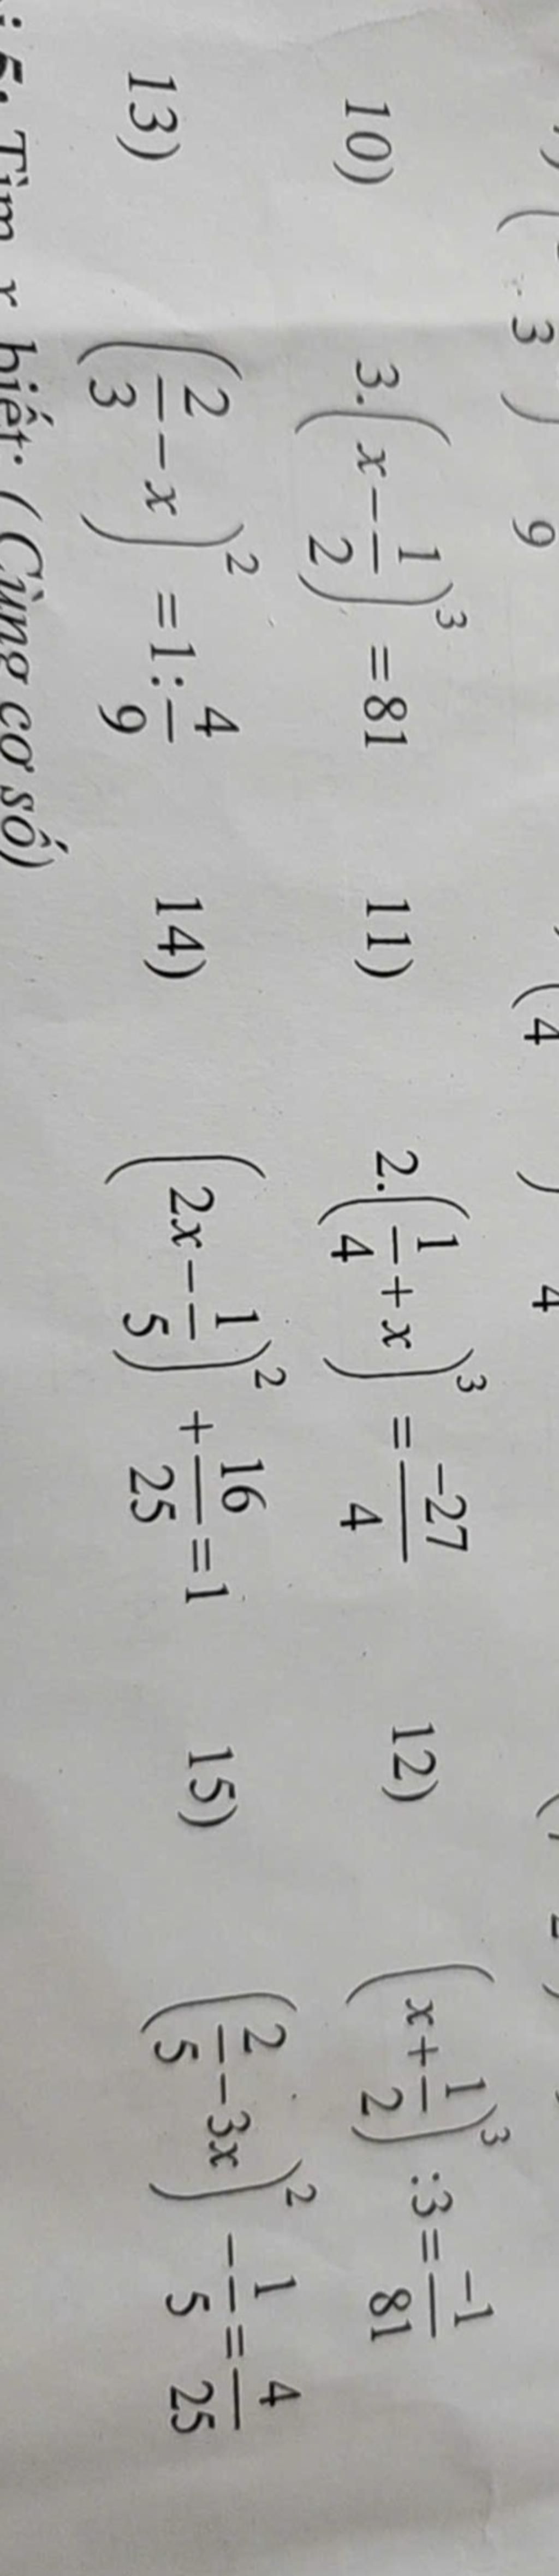 10) 3.(x - 1/2)^3 = 81 11) 2.(1/4 + x)^3 = -27/4 12) (x + 1/2)^3 :3 = -1/81
13) (2/3 - x)^2 = 1: 4/9 14) (2x - 1/5)^2 + 16/25 = 1 15) (2/5 - 3x)^2 - 1/5 = 4/25
5: Tìm x biết: ( Cùng cơ số)